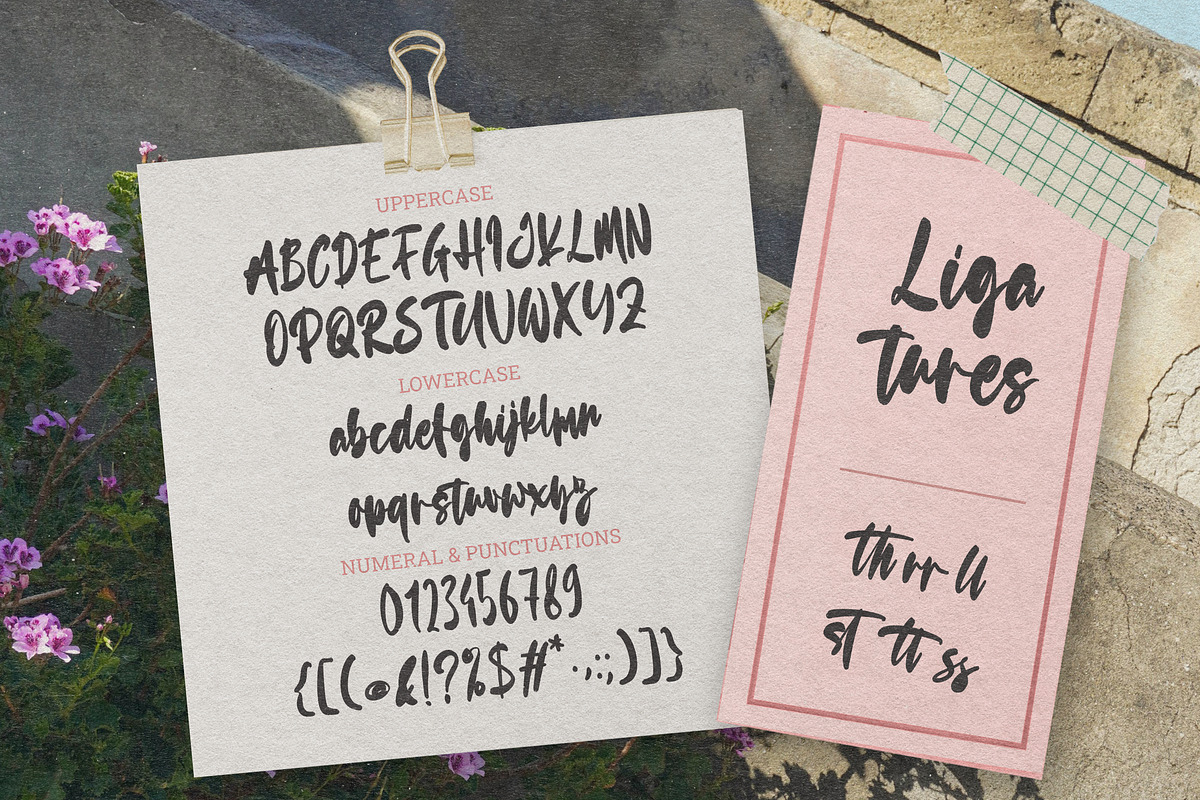 UPPERCASE
ABCDEFGHIJKLMN
OPQRSTUVWXYZ
LOWERCASE
abcdefghijklmn
opqrstuvwxyz
NUMERAL & PUNCTUATIONS
0123456789
{[(@&!?%$#*.,:;)]}
Liga
Tures
th rr ll
st tt ss